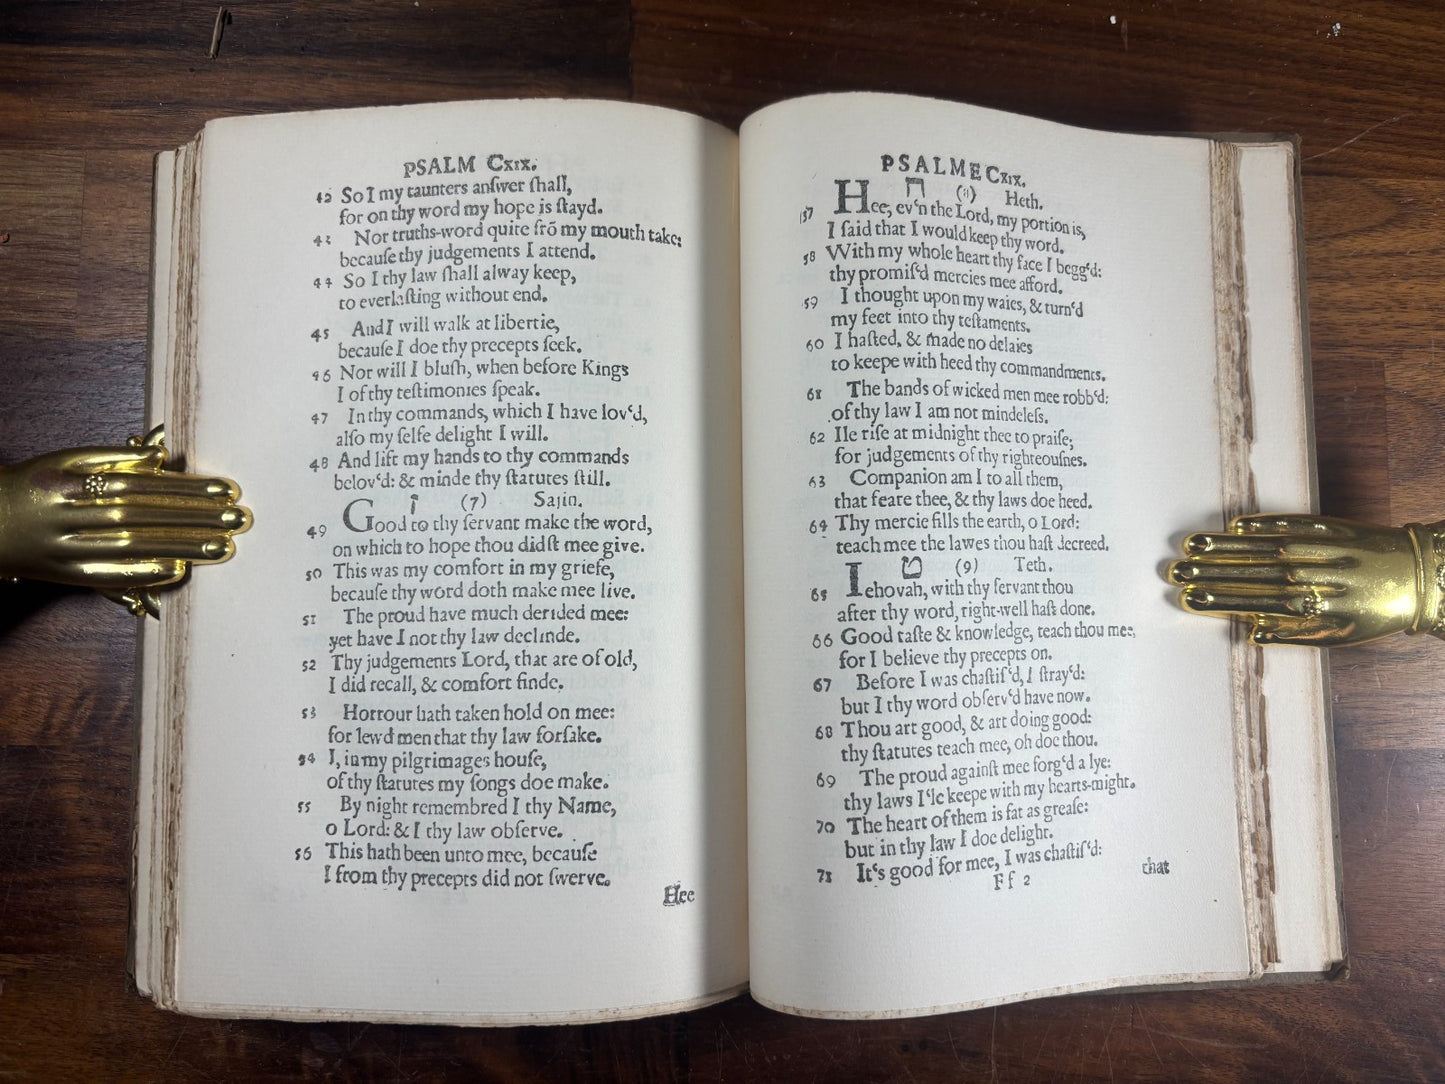 PSALM Cxix.
42 So I my taunters anſwer ſhall,
for on thy word my hope is ſtayd.
43 Nor truths-word quite frõ my mouth take:
becauſe thy judgements I attend.
44 So I thy law ſhall alway keep,
to everlaſting without end.
45 And I will walk at libertie,
becauſe I doe thy precepts ſeek.
46 Nor will I bluſh, when before Kings
I of thy teſtimonies ſpeak.
47 In thy commands, which I have lov‘d,
alſo my ſelfe delight I will.
48 And lift my hands to thy commands
belov‘d: & minde thy ſtatutes ſtill.
ז (7) Sajin.
49 Good to thy ſervant make the word,
on which to hope thou didſt mee give.
50 This was my comfort in my griefe,
becauſe thy word doth make mee live.
51 The proud have much derided mee:
yet have I not thy law declinde.
52 Thy judgements Lord, that are of old,
I did recall, & comfort finde.
53 Horrour hath taken hold on mee:
for lewd men that thy law forſake.
54 I, in my pilgrimages houſe,
of thy ſtatutes my ſongs doe make.
55 By night remembred I thy Name,
o Lord: & I thy law obſerve.
56 This hath been unto mee, becauſe
I from thy precepts did not ſwerve.
Hee
PSALME Cxix.
ח (8) Heth.
57 Hee, ev‘n the Lord, my portion is,
I ſaid that I would keep thy word.
58 With my whole heart thy face I begg‘d:
thy promiſ‘d mercies mee afford.
59 I thought upon my waies, & turn‘d
my feet into thy teſtaments.
60 I haſted, & made no delaies
to keepe with heed thy commandments.
61 The bands of wicked men mee robb‘d:
of thy law I am not mindeleſs.
62 Ile riſe at midnight thee to praiſe;
for judgements of thy righteouſnes.
63 Companion am I to all them,
that feare thee, & thy laws doe heed.
64 Thy mercie fills the earth, o Lord:
teach mee the lawes thou haſt decreed.
ט (9) Teth.
65 Iehovah, with thy ſervant thou
after thy word, right-well haſt done.
66 Good taſte & knowledge, teach thou mee,
for I believe thy precepts on.
67 Before I was chaſtiſ‘d, I ſtray‘d:
but I thy word obſerv‘d have now.
68 Thou art good, & art doing good:
thy ſtatutes teach mee, oh doe thou.
69 The proud againſt mee forg‘d a lye:
thy laws I‘le keepe with my hearts-might.
70 The heart of them is fat as greaſe:
but in thy law I doe delight.
71 It‘s good for mee, I was chaſtiſ‘d:
Ff 2
that